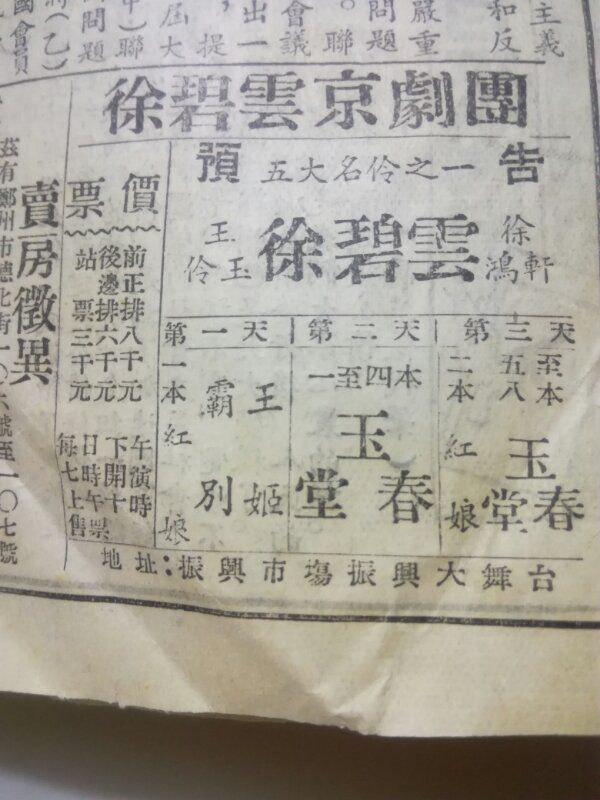 主義
和反
嚴重
問題
。聯
會議
出一
，提
屆大
）聯
問題
（乙）
國會員
徐碧雲京劇團
預告
五大名伶之一
王玉伶
徐碧雲
徐鴻軒
第一天
第一本紅娘
霸王別姬
第二天
一至四本
玉堂春
第三天
二本紅娘
五至八本
玉堂春
票價
前正排八千元
後邊排六千元
站票三千元
每日下午
七時開演
上午十時
售票
地址：振興市塲振興大舞台
賣房徵異
茲有鄭州市德北街一〇六號至一〇七號